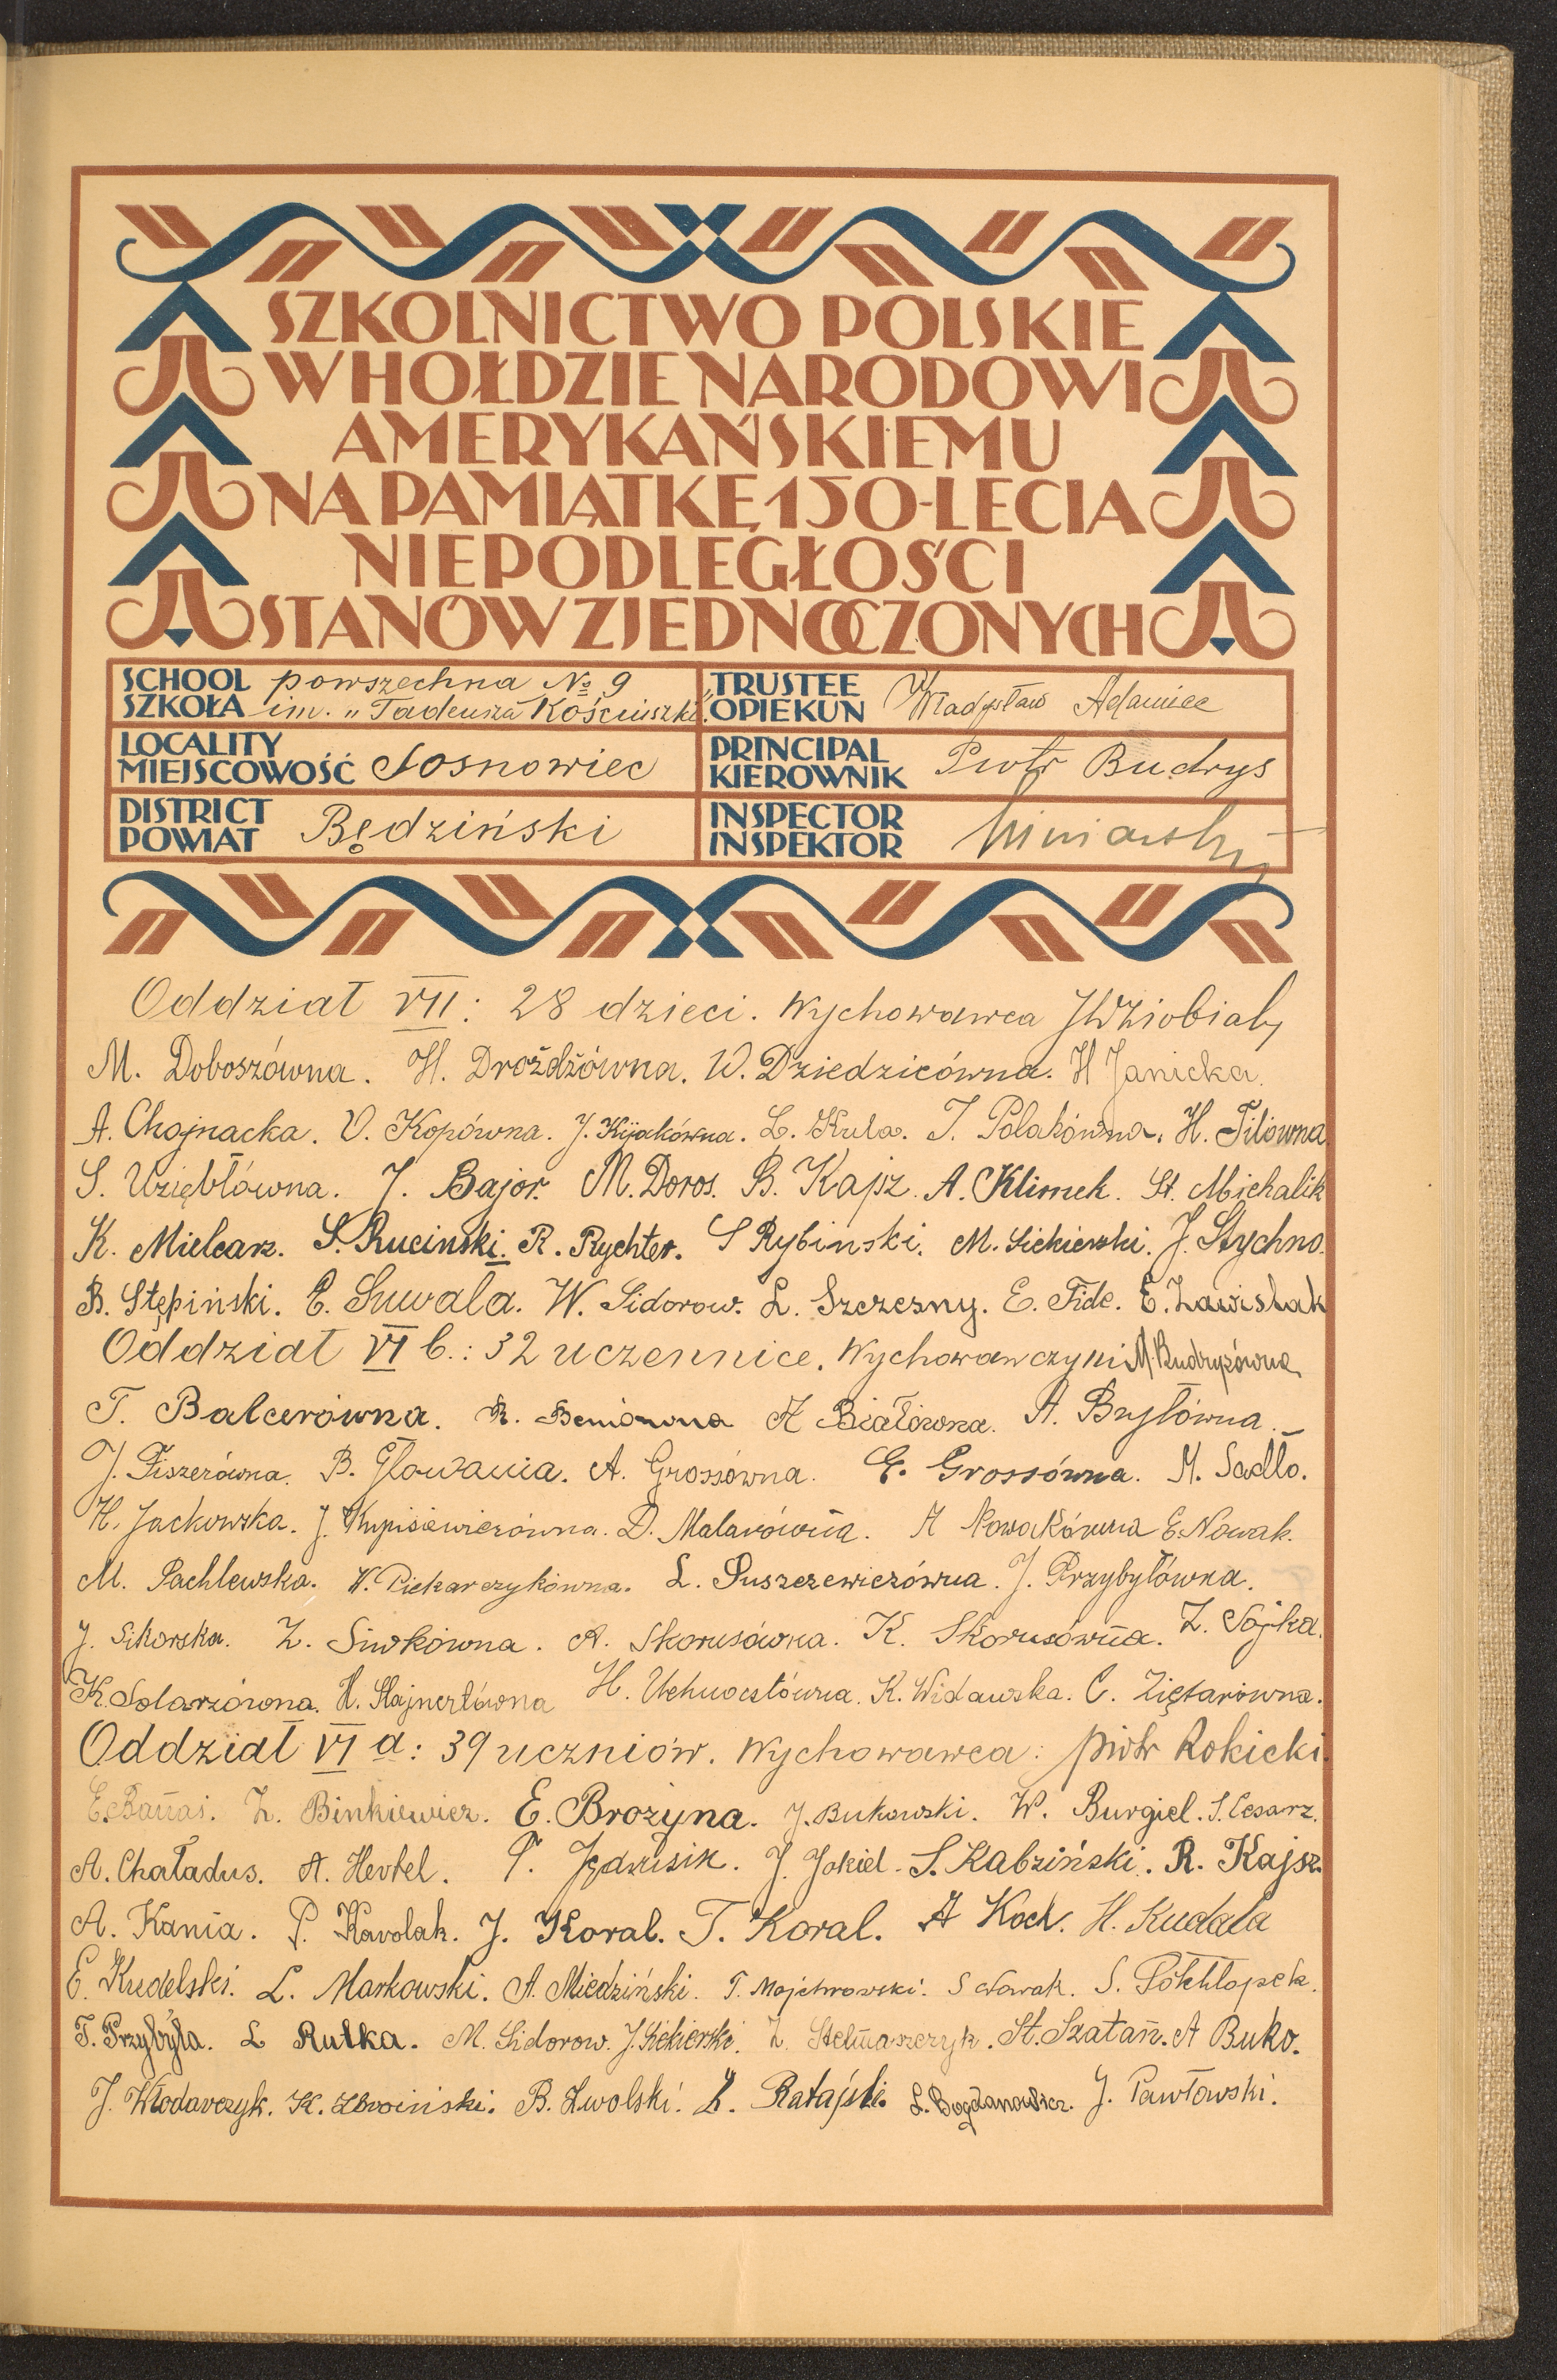 SZKOLNICTWO POLSKIE
W HOŁDZIE NARODOWI
AMERYKAŃSKIEMU
NA PAMIĄTKĘ 150-LECIA
NIEPODLEGŁOŚCI
STANÓW ZJEDNOCZONYCH
SCHOOL SZKOŁA powszechna № 9 im. „Tadeusza Kościuszki"
TRUSTEE OPIEKUN Władysław Adamiec
LOCALITY MIEJSCOWOŚĆ Sosnowiec
PRINCIPAL KIEROWNIK Piotr Budrys
DISTRICT POWIAT Będziński
INSPECTOR INSPEKTOR
Oddział VII: 28 dzieci. Wychowawca
M. Doboszówna. H. Drożdżówna. W. Dziedzicówna. H Janicka.
A. Chojnacka. V. Kopówna. J. Kijakówna. L. Kula. T. Polakówna. H. Tilówna
S. Uziębłówna. J. Bajor. M. Doros. B. Kapz. A. Klimek. St. Michalik
K. Mielcarz. S. Ruciński. R. Rychter. S Rybinski. M. Siekierski. J. Stychno.
B. Stępiński. E. Suwała. W. Sidorow. L. Szczesny. E. Fide. E. Zawislak
Oddział VI b.: 32 uczennice. Wychowawczyni M. Budrysówna
T. Balcerówna. R. Beniówna A Białówna. A. Bryłówna.
J. Fiszerówna. B. Głowania. A. Grossówna. E. Grossówna. M. Sadło.
H. Jackowska. J. Kupisiewiczówna. D. Malarówna. A Nowakówna E. Nowak.
M. Pachlewska. W. Piekarczykówna. L. Puszczewiczówna. J. Przybyłówna.
J. Sikorska. Z. Siwkówna. A. Skorusówna. K. Skorusówna. Z. Sojka.
K. Solarzówna. H. Stajnertówna H. Uchnastówna. K. Widawska. C. Ziętarówna.
Oddział VI a: 39 uczniów. Wychowawca: Piotr Rokicki.
E. Banaś. Z. Binkiewicz. E. Brożyna. J. Bukowski. W. Burgiel. S. Cesarz.
A. Chaładus. A. Hertel. T. Jędrusik. J. Jokiel. S. Kabziński. R. Kajsz.
A. Kania. P. Karolak. J. Koral. T. Koral. A Koch. H. Kudała
E. Kudelski. L. Markowski. A. Miedziński. T. Majchrowski. S Nowak. S. Półchłopek.
T. Przybyła. L Rutka. M. Sidorow. J. Siekierski. Z. Stelmaszczyk. St. Szatan. A Buko.
J. Włodarczyk. K. Zbroiński. B. Zwolski. Z. Ratajski. L. Bogdanowicz. J. Pawłowski.